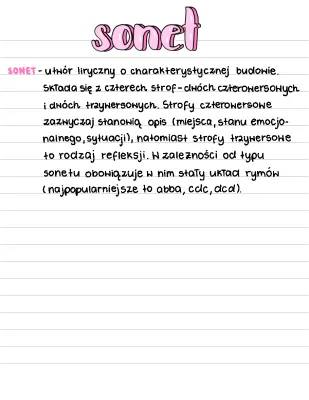 sonet
SONET - utwór liryczny o charakterystycznej budowie.
Składa się z czterech strof - dwóch czterowersowych
i dwóch trzywersowych. Strofy czterowersowe
zazwyczaj stanowią opis (miejsca, stanu emocjo-
nalnego, sytuacji), natomiast strofy trzywersowe
to rodzaj refleksji. W zależności od typu
sonetu obowiązuje w nim stały układ rymów
(najpopularniejsze to abba, cdc, dcd).